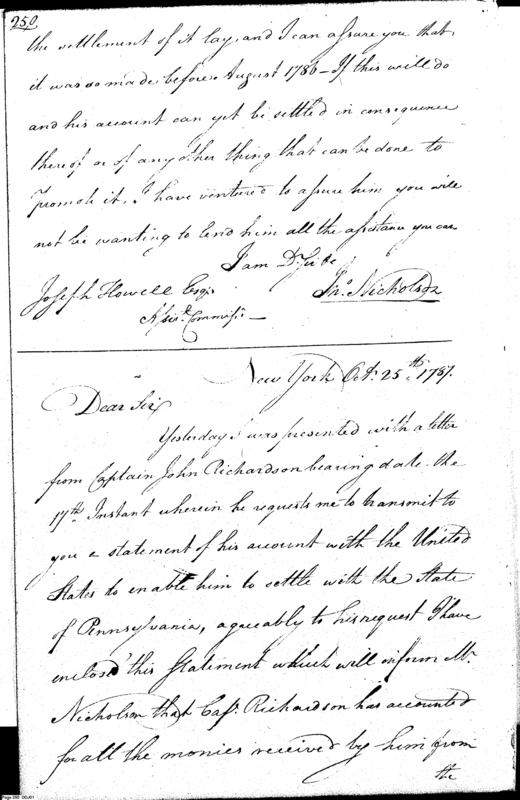 250.
the settlement of it lay, and I can assure you that
it was so made before August 1786 – If this will do
and his account can yet be settled in consequence
thereof or of any other thing that can be done to
promote it, I have ventured to assure him you will
not be wanting to lend him all the assistance you can
I am Dr. Sir &c
Joseph Howell Esqr. Jno. Nicholson
Assist. Commissr. —
New York Oct. 25th. 1787.
Dear Sir
Yesterday I was presented with a letter
from Captain John Richardson bearing date the
17th. Instant wherein he requests me to transmit to
you a statement of his account with the United
States to enable him to settle with the State
of Pennsylvania, agreeably to his request I have
enclosed this Statement which will inform Mr.
Nicholson that Capt. Richardson has accounted
for all the monies received by him from
the